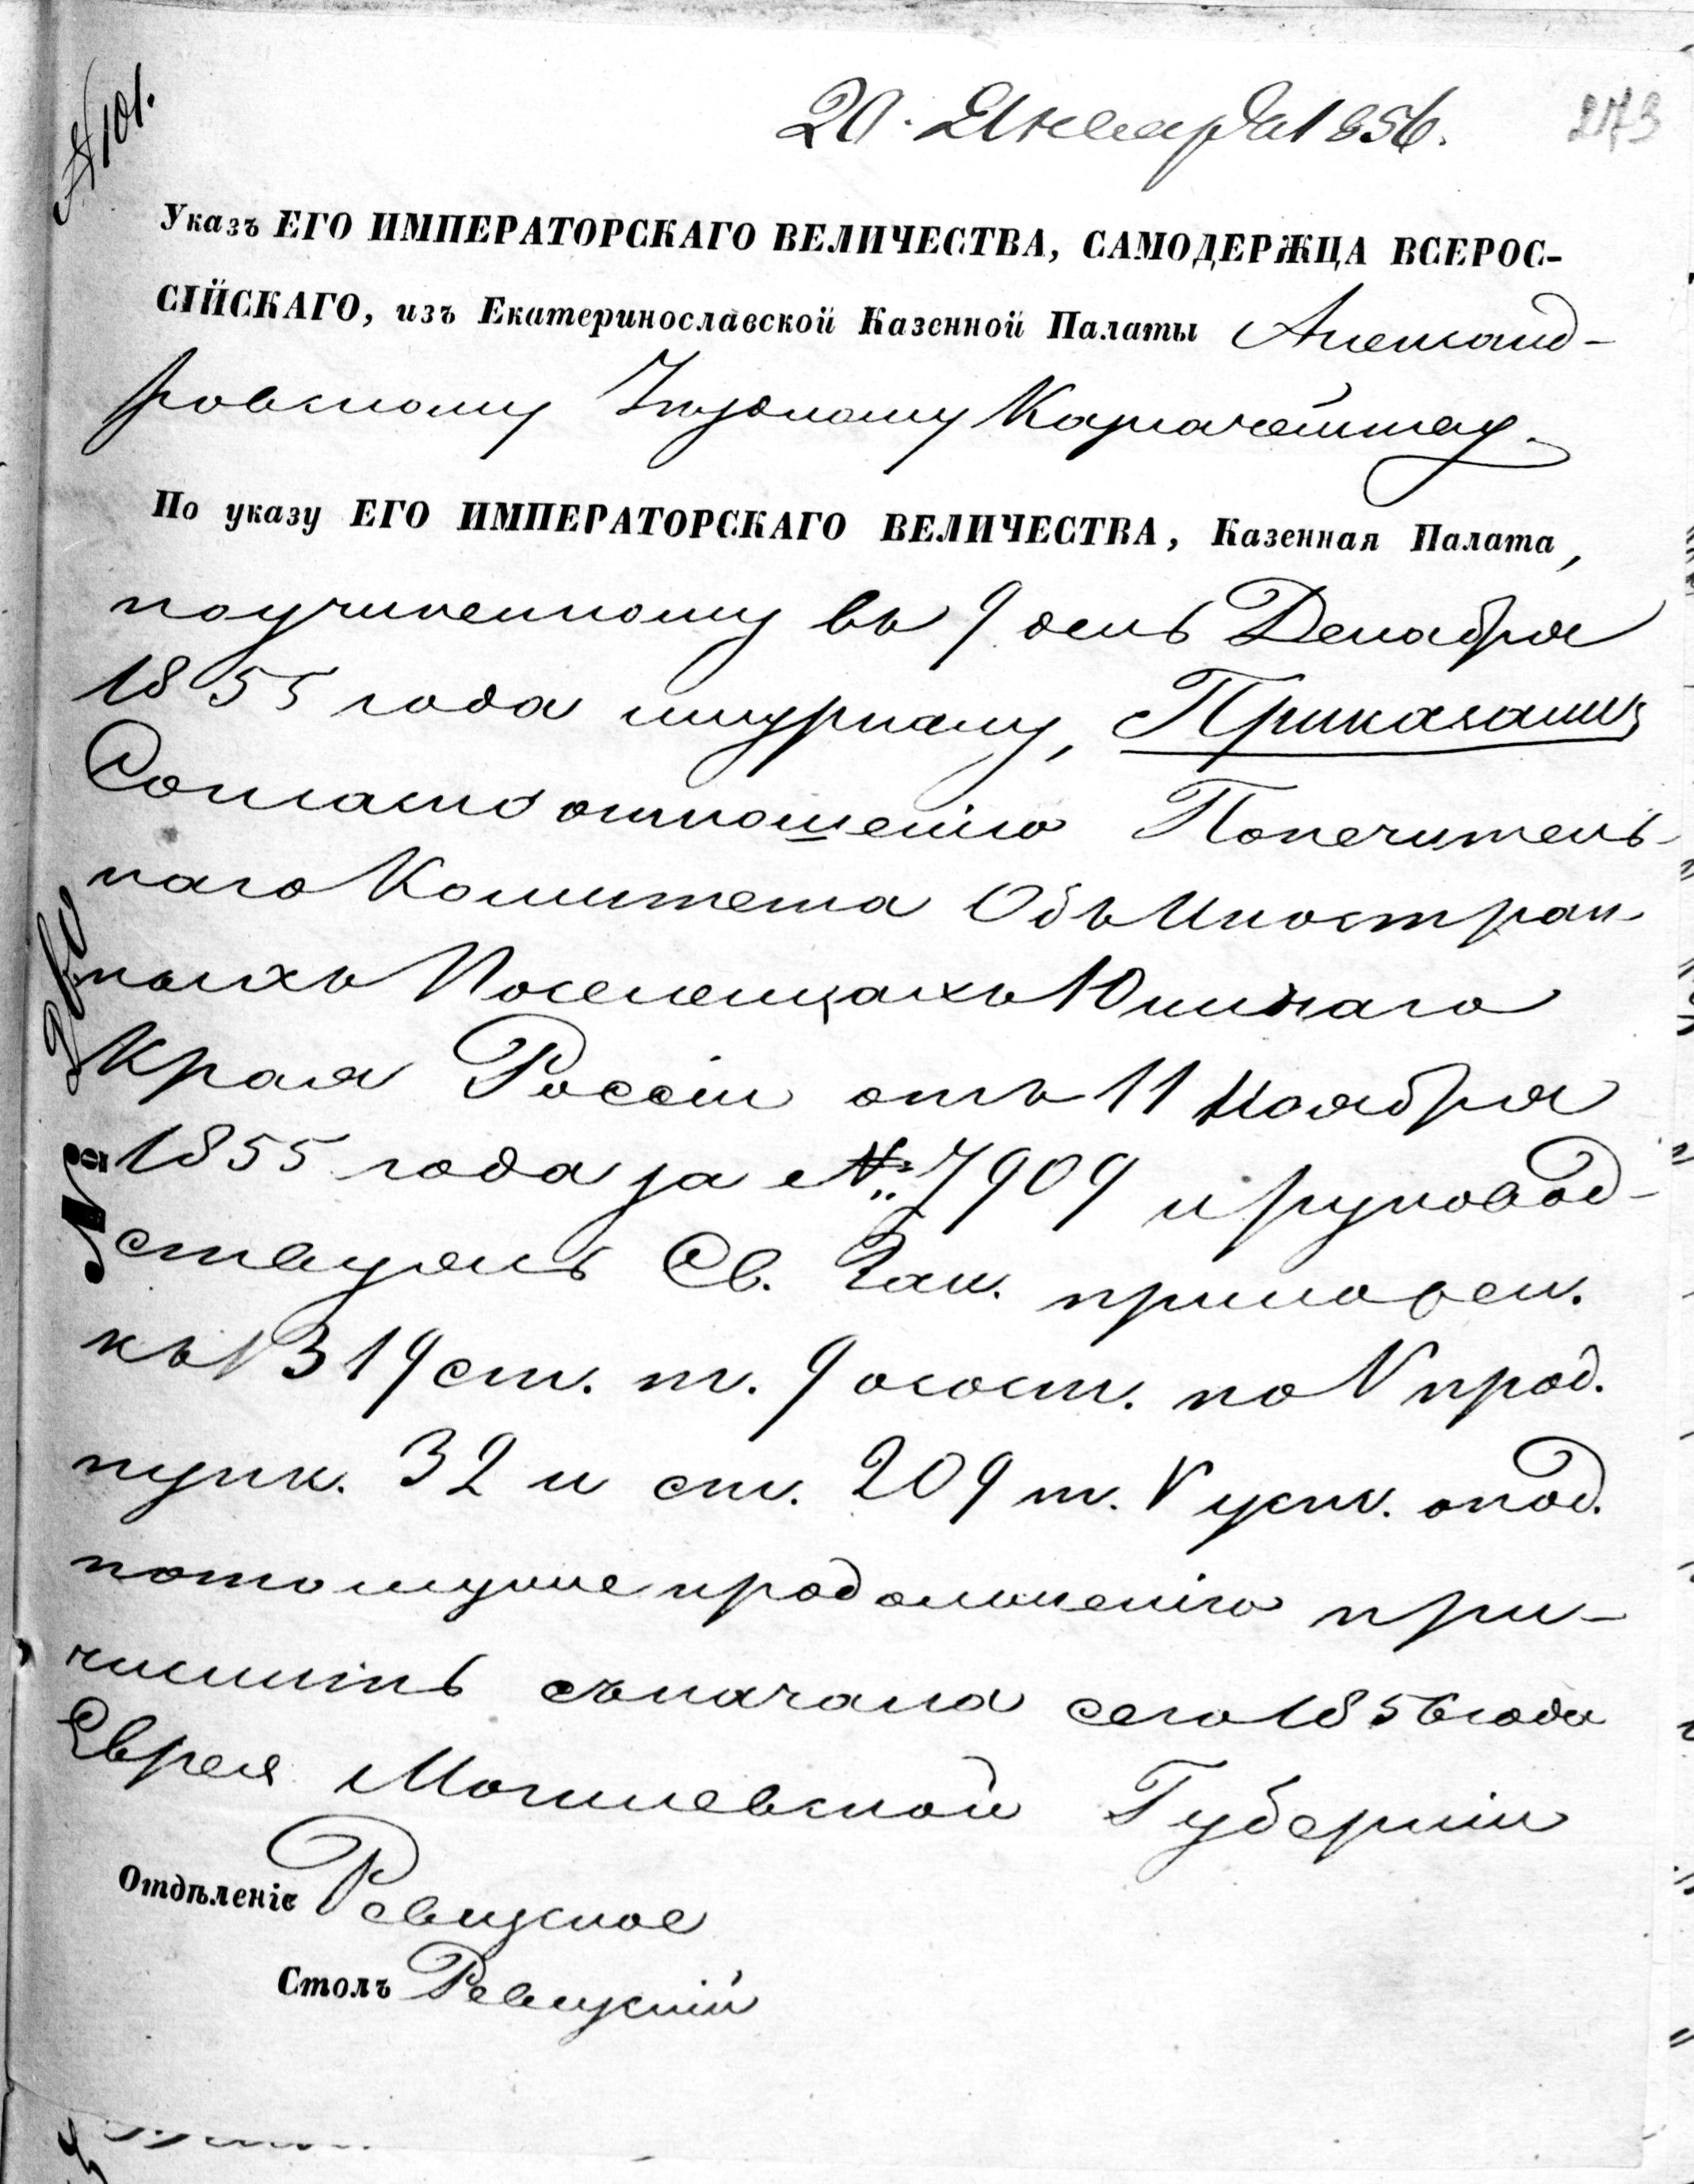 № 101.
20. Января 1856.
273
Указъ ЕГО ИМПЕРАТОРСКАГО ВЕЛИЧЕСТВА, САМОДЕРЖЦА ВСЕРОС-
СІЙСКАГО, изъ Екатеринославской Казенной Палаты Александ-
ровскому Уѣздному Казначейству.
По указу ЕГО ИМПЕРАТОРСКАГО ВЕЛИЧЕСТВА, Казенная Палата,
по учиненному въ 9 день Декабря
1855 года журналу, Приказали
Согласно отношенію Попечитель-
наго Комитета Объ Иностран
ныхъ Поселенцахъ Южнаго
Края Россіи отъ 11 Ноября
1855 года за № 7909 и руковод-
ствуясь Св. Зак. приложен.
къ 1319 ст. т. 9 о сост. по V прод.
пунк. 32 и ст. 209 т. V уст. о под.
по томуже продолженію при-
числить съ начала сего 1856 года
Еврея Могилевской Губерніи
№
Отдѣленіе Ревизское
Столъ Ревизскій